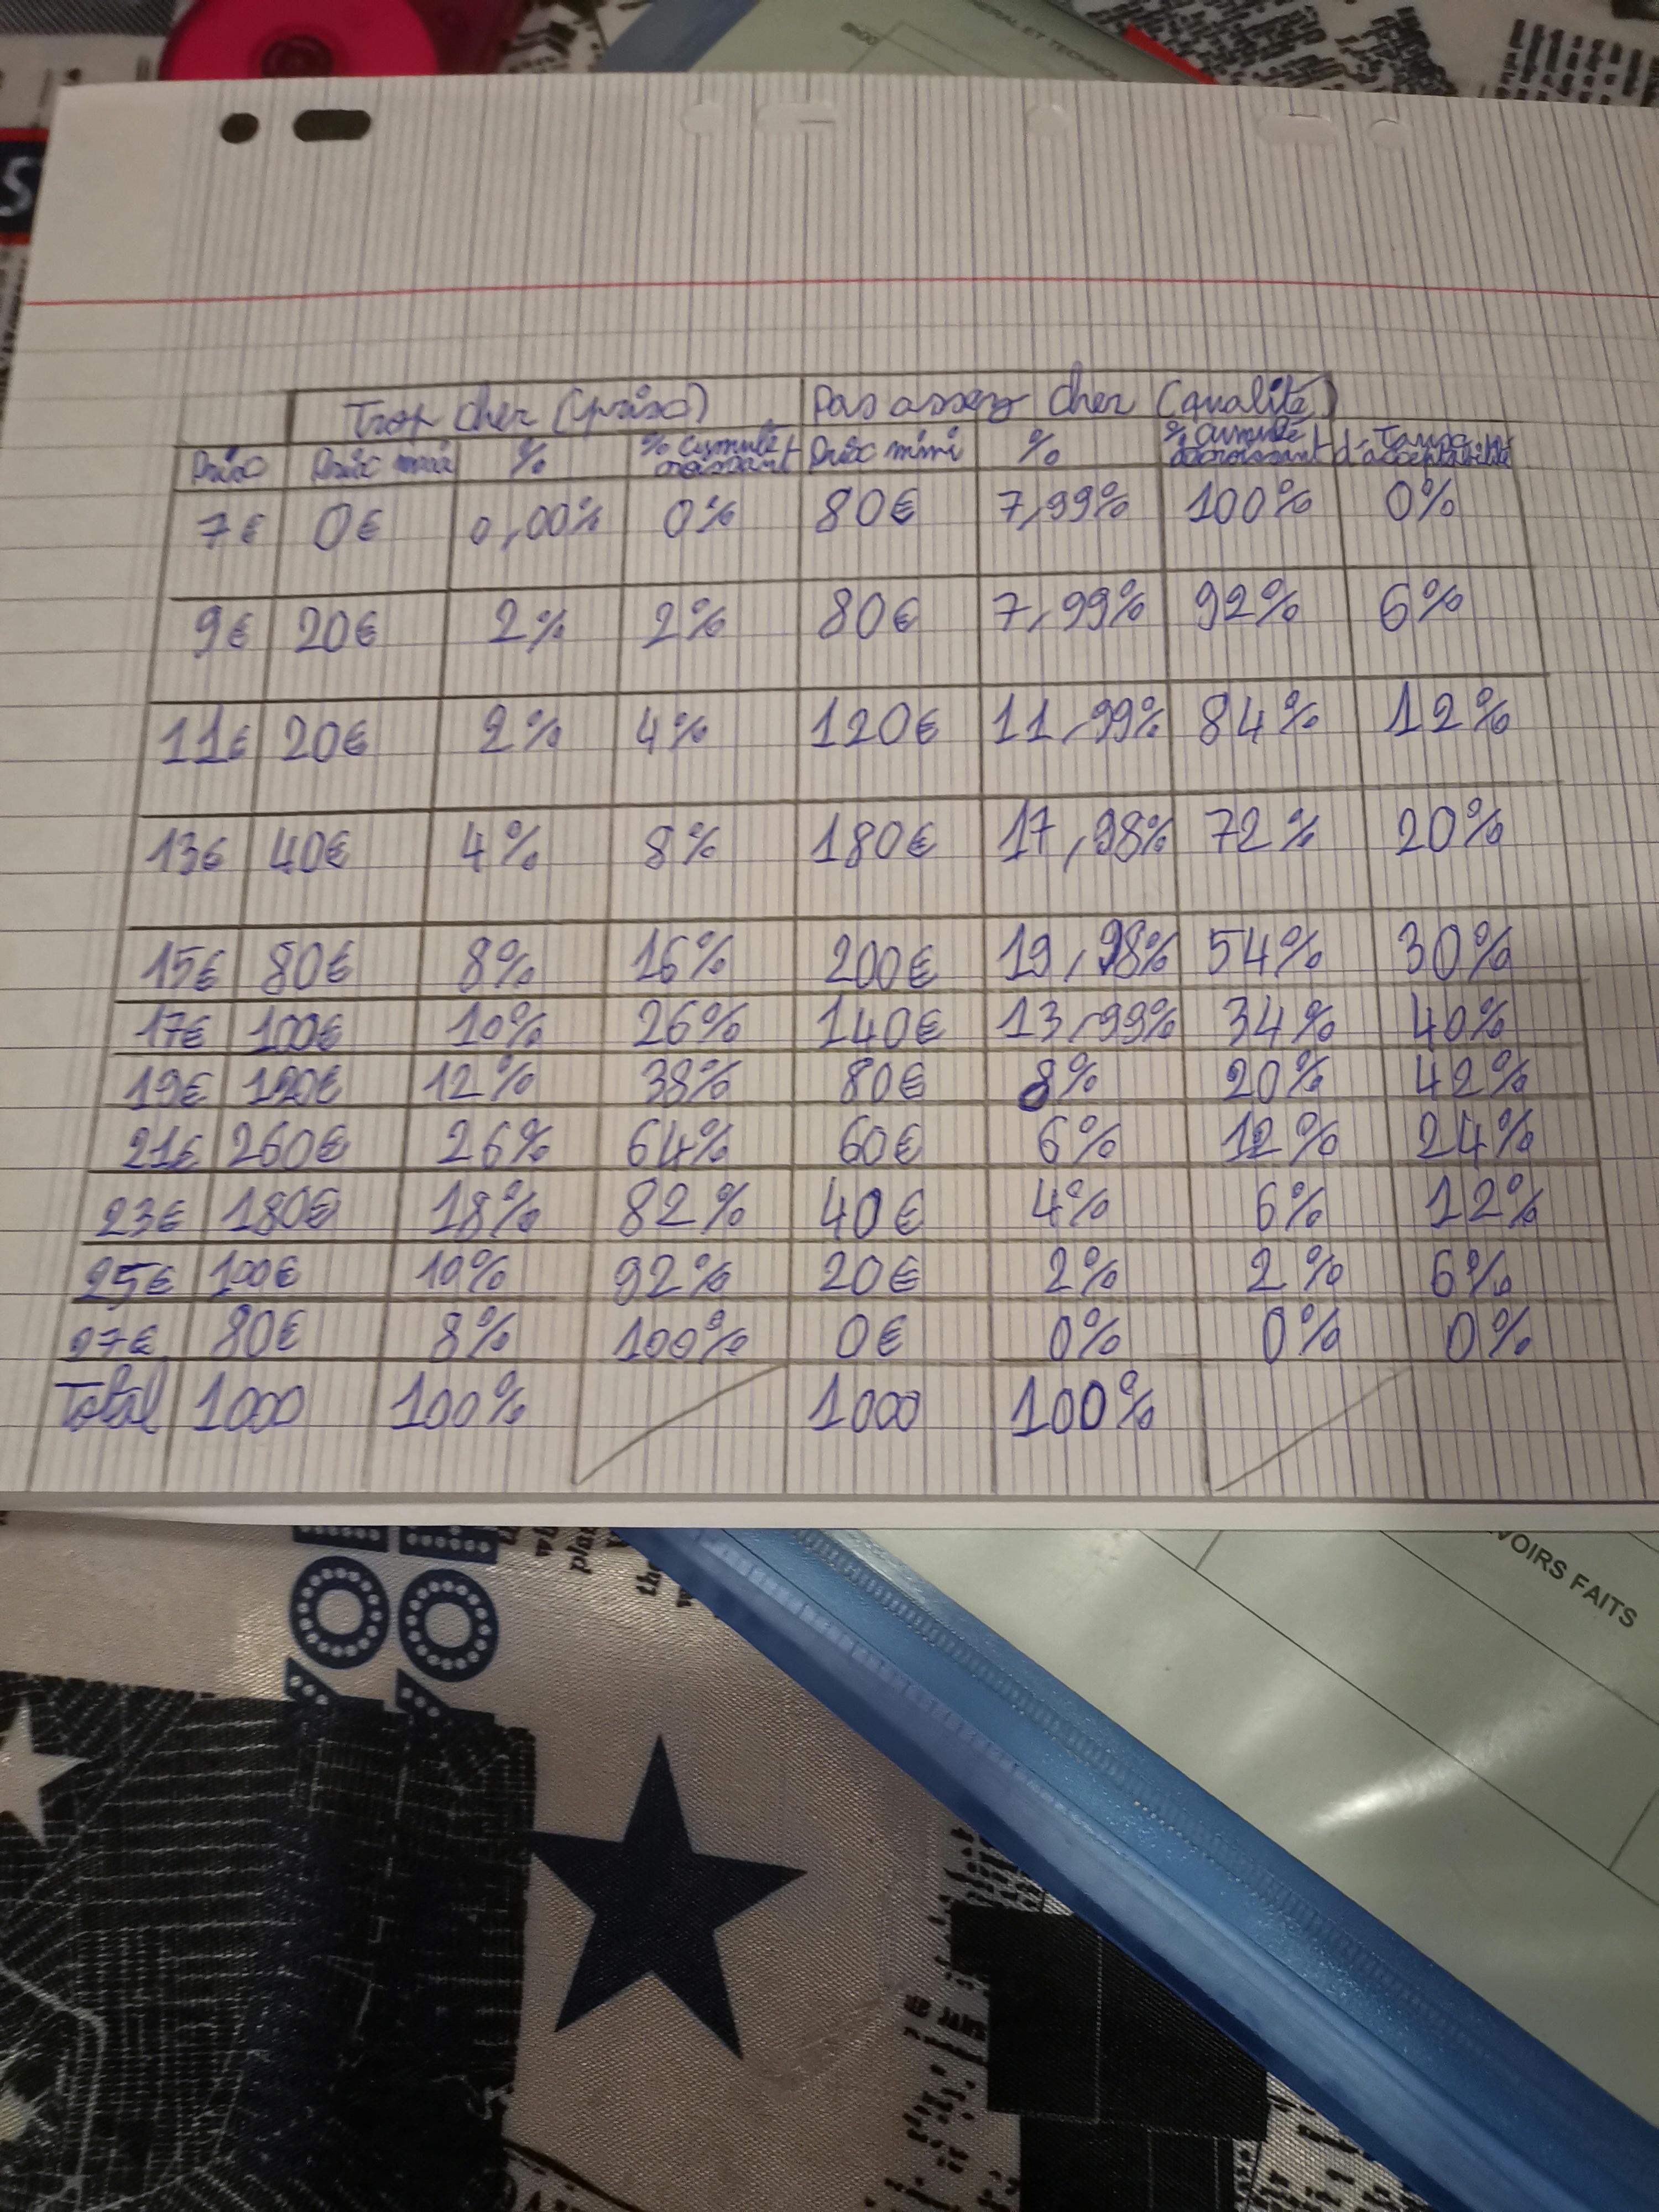 NERAL ET TECHNOL
8H00
S
Trop cher (prix)	Pas assez cher (qualité)
Prix	Prix maxi	%	% cumulé croissant	Prix mini	%	% cumulé décroissant	Taux d'acceptabilité
7€	0€	0,00%	0%	80€	7,99%	100%	0%
9€	20€	2%	2%	80€	7,99%	92%	6%
11€	20€	2%	4%	120€	11,99%	84%	12%
13€	40€	4%	8%	180€	17,98%	72%	20%
15€	80€	8%	16%	200€	19,98%	54%	30%
17€	100€	10%	26%	140€	13,99%	34%	40%
19€	120€	12%	38%	80€	8%	20%	42%
21€	260€	26%	64%	60€	6%	12%	24%
23€	180€	18%	82%	40€	4%	6%	12%
25€	100€	10%	92%	20€	2%	2%	6%
27€	80€	8%	100%	0€	0%	0%	0%
Total	1000	100%	1000	100%
VOIRS FAITS
YO
YO